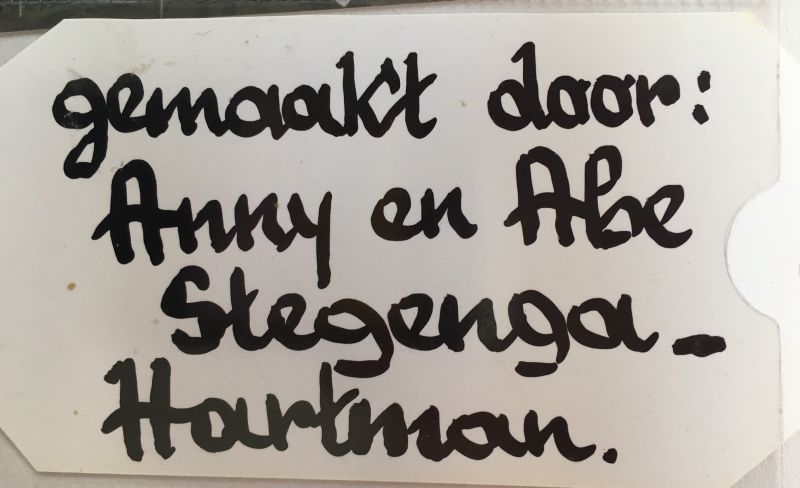 gemaakt door:
Anny en Abe
Stegenga-
Hartman.